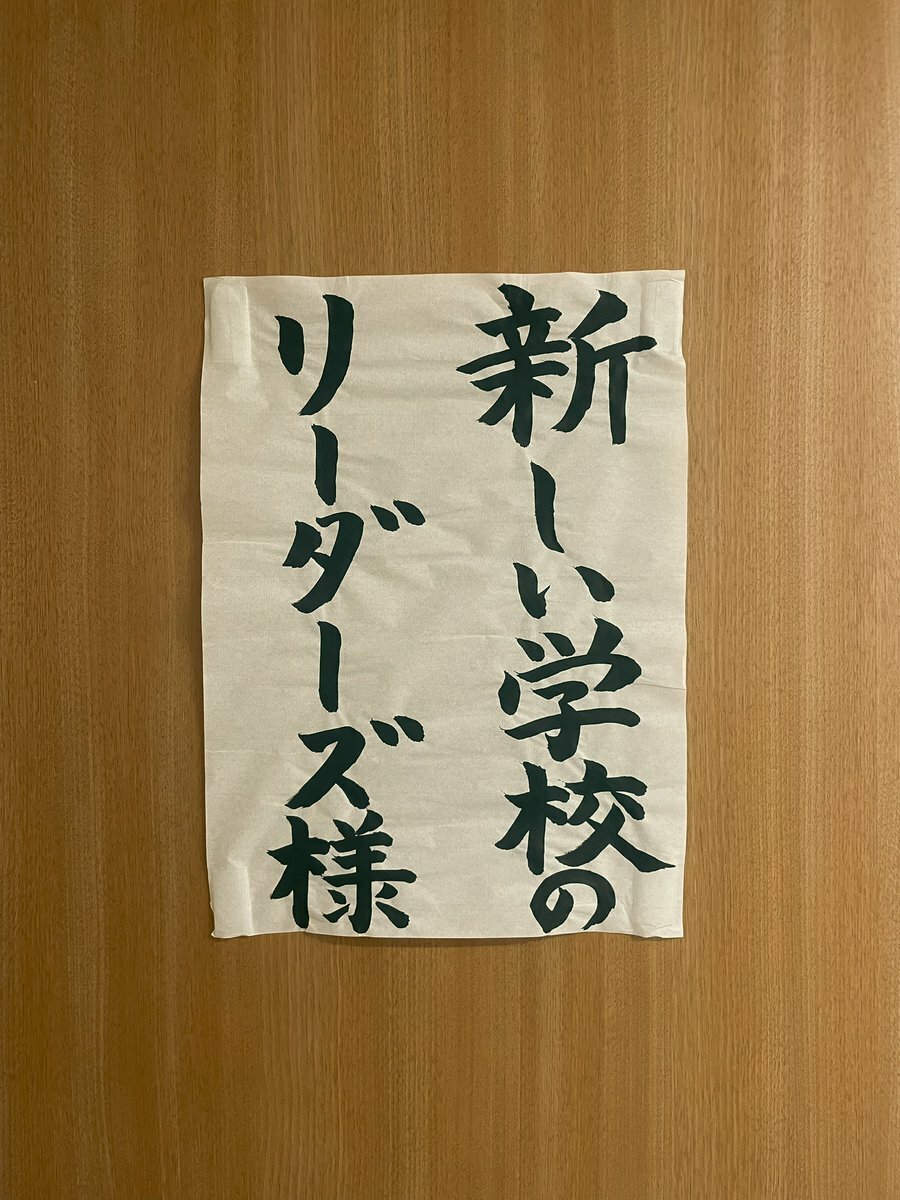 新しい学校の
リーダーズ様